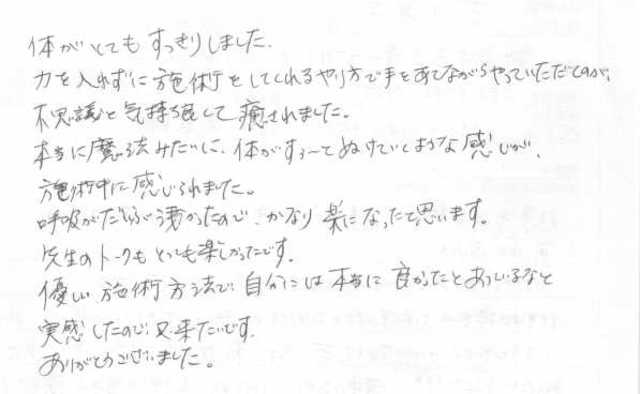 体がとてもすっきりしました。
力を入れずに施術をしてくれるやり方で手をあてながらやっていただてのが、
不思議と気持ち良くて癒されました。
本当に魔法みたいに、体がすぅ〜とぬけていくような感じが、
施術中に感じられました。
呼吸がだいぶ浅かったので、かなり楽になったて思います。
先生のトークもとっても楽しかったです。
優しい施術方法で、自分には本当に良かったとあっているなと
実感したので、又来たいです。
ありがとうございました。